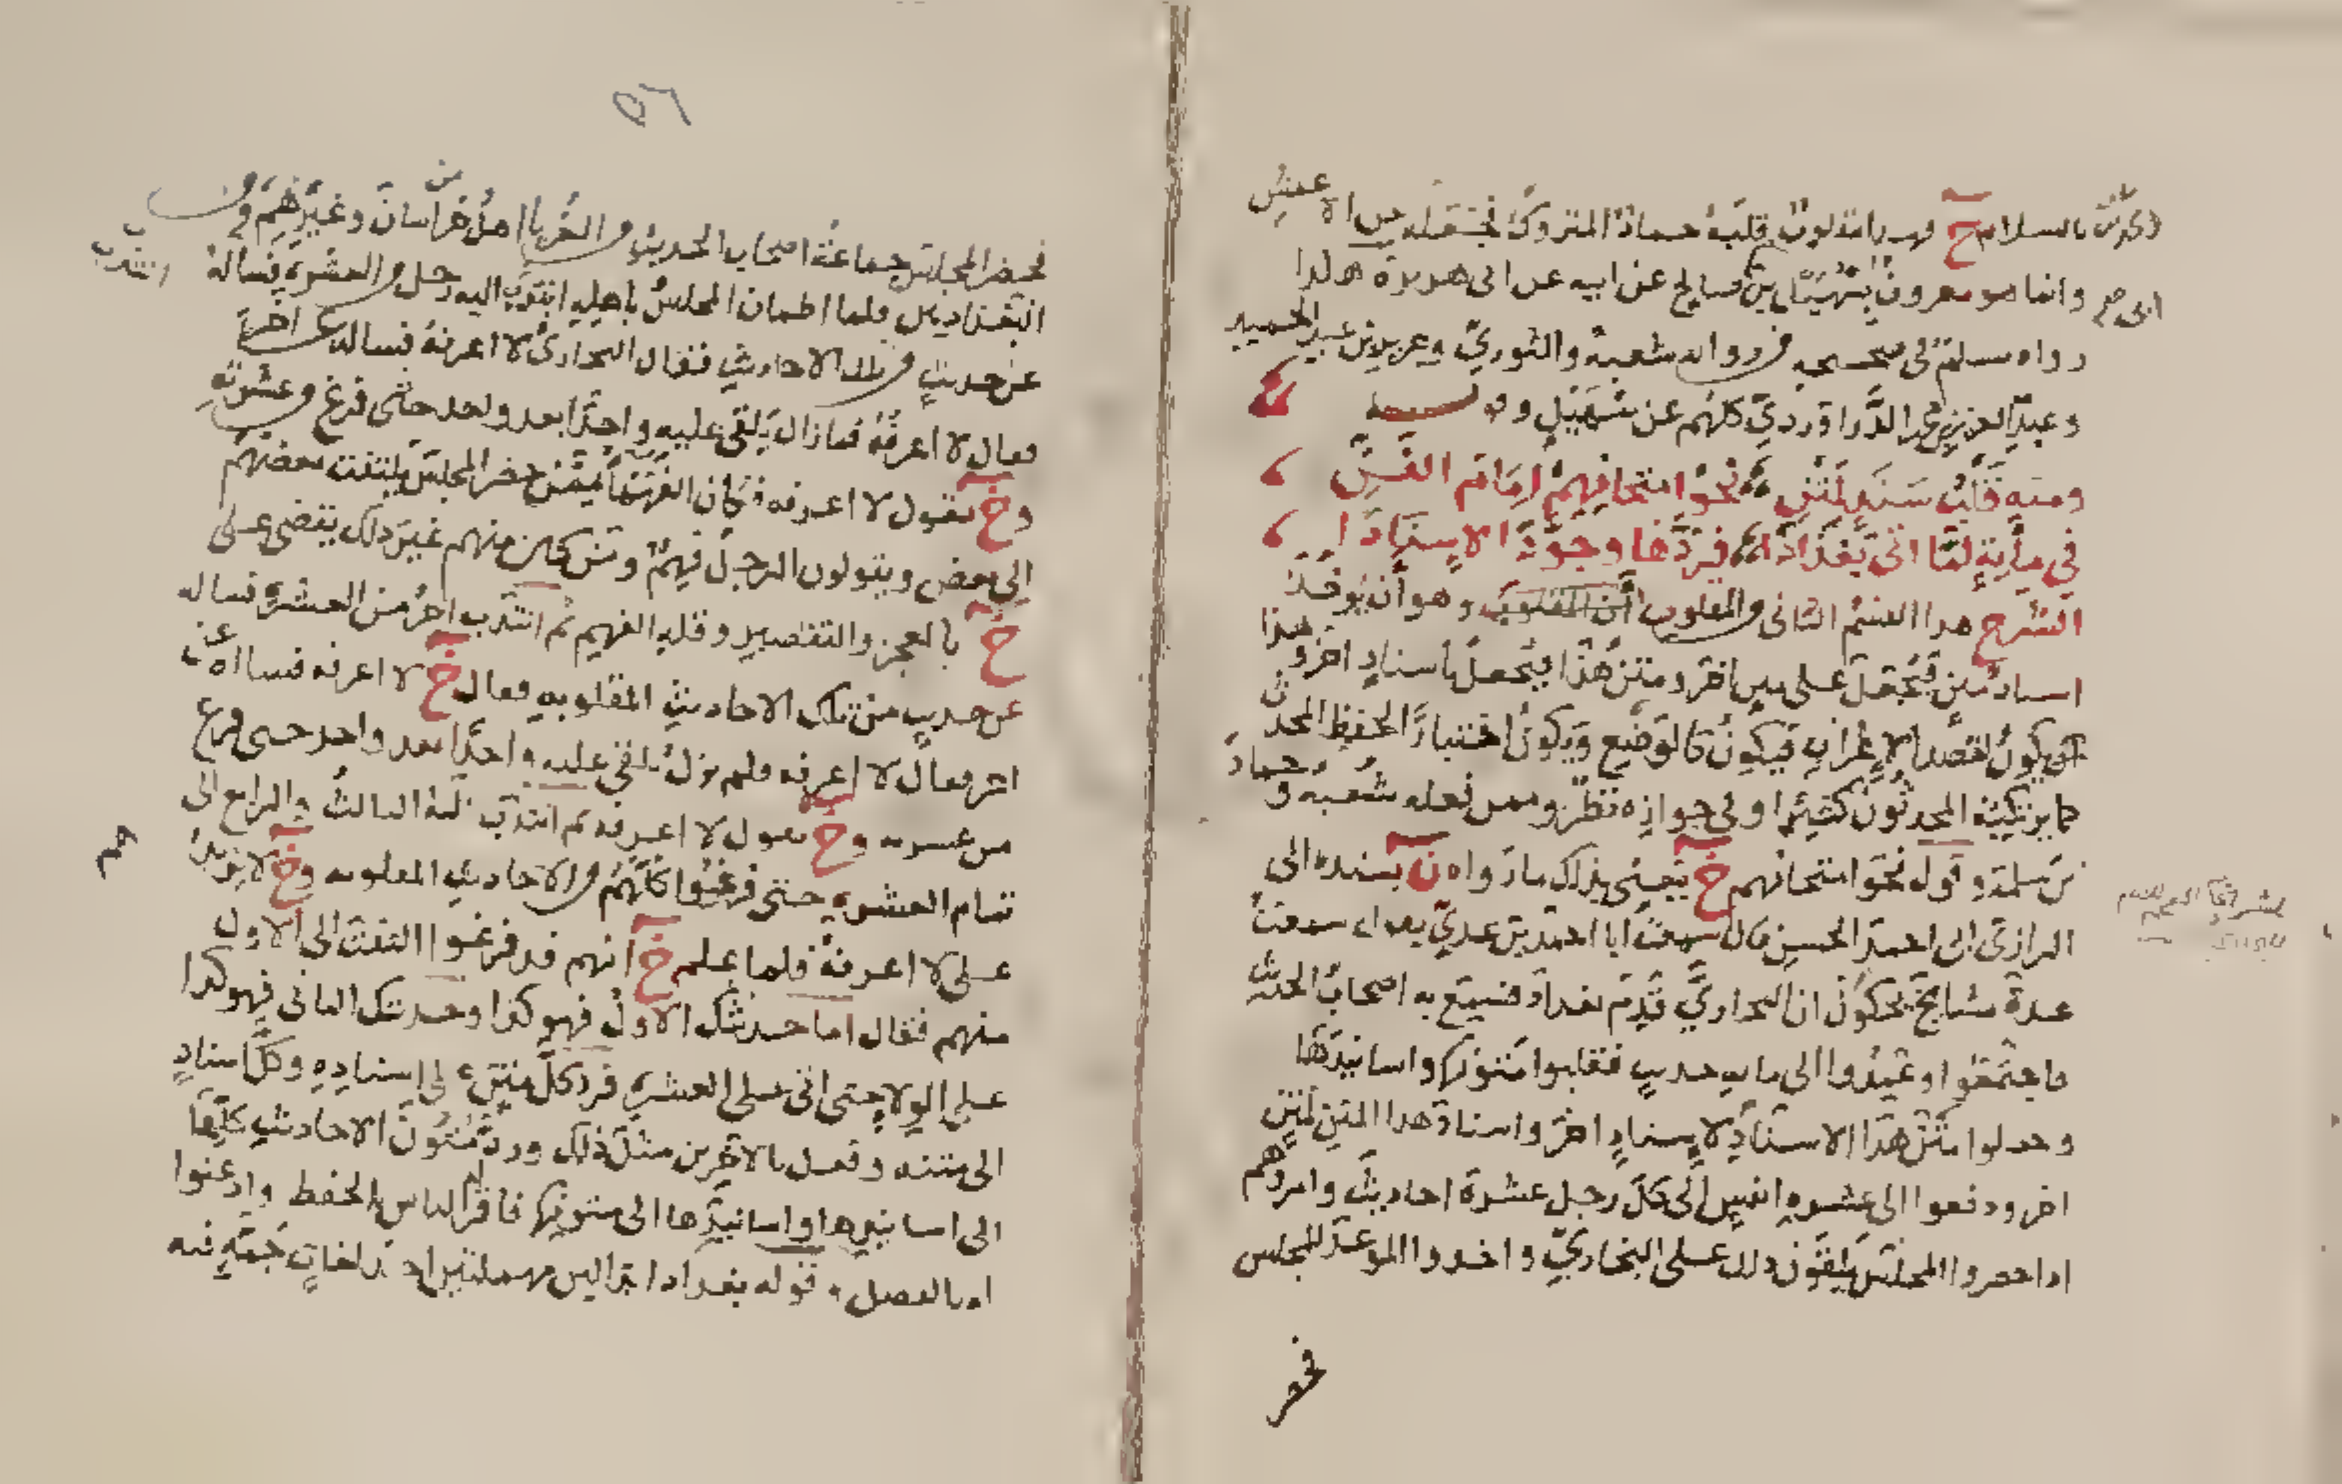 بالسلام خ فهذا مقلوب قلبه حماد المتروك فجعله عن الاعمش
وانما هو معروف بسهيل بن صالح عن ابيه عن ابى هريرة هكذا
رواه مسلم فى صحيحه من رواية شعبة والثوري وجرير بن عبد الحميد
وعبد العزيز بن محمد الدراوردي كلهم عن سهيل
ومنه قلب سند لمتن نحو امتحانهم امام الفن
في مأية لما اتى بغدادا فردها وجود الاسنادا
الشرح هذا القسم الثانى من المقلوب وهو أن يوخذ
اسناد متن فيجعل على متن اخر ومتن هذا فيجعل باسناد اخر وهذا
قد يكون لقصد الاغراب فيكون كالوضع ويكون اختبارا لحفظ المحدث
كما يرتكبه المحدثون كثيرا وفى جوازه نظر وممن فعله شعبة وحماد
بن سلمة وقوله نحو امتحانهم خ يعنى بذلك ما رواه ن بسنده الى
الرازى الى احمد بن الحسين قال سمعت ابا احمد بن عدي يقول سمعت
عدة مشايخ يحكون ان البخاري قدم بغداد فسمع به اصحاب الحديث
فاجتمعوا وعمدوا الى ماية حديث فقلبوا متونها واسانيدها
وجعلوا متن هذا الاسناد لاسناد اخر واسناد هذا المتن لمتن
اخر ودفعوا الى عشرة انفس الى كل رجل عشرة احاديث وامروهم
اذا حضروا المجلس يلقون ذلك على البخاري واخذوا الموعد للمجلس
فحضر
٥٦
فحضر المجلس جماعة اصحاب الحديث من الغربا من اهل خراسان وغيرهم ومن
البغداديين فلما اطمان المجلس باهله انتدب اليه رجل من العشرة فساله
انتدب
عن حديث من تلك الاحاديث فقال البخارى لا اعرفه فساله عن اخر
فقال لا اعرفه فما زال يلقى عليه واحدا بعد واحد حتى فرغ من عشرته
وخ يقول لا اعرفه فكان الفهما ممن حضر المجلس يلتفت بعضهم
الى بعض ويقولون الرجل فهم ومن كان منهم غير ذلك يقضى على
خ بالعجز والتقصير وقلة الفهم ثم انتدب اخر من العشرة فساله
عن حديث من تلك الاحاديث المقلوبه فقال خ لا اعرفه فساله عن
اخر فقال لا اعرفه فلم يزل يلقى عليه واحدا بعد واحد حتى فرغ
من عشرته وخ يقول لا اعرفه ثم انتدب له الثالث والرابع الى
تمام العشرة حتى فرغوا كلهم من الاحاديث المقلوبه وخ لا يزيد
على لا اعرفه فلما علم خ انهم قد فرغوا التفت الى الاول
منهم فقال اما حديثك الاول فهو كذا وحديثك الثانى فهو كذا
على الولا حتى اتى على العشرة فرد كل متن الى اسناده وكل اسناد
الى متنه وفعل بالاخرين مثل ذلك ورد متون الاحاديث كلها
الى اسانيدها واسانيدها الى متونها فاقر له الناس بالحفظ واذعنوا
له بالفضل قوله بغدادا بدالين مهملتين احد لغات جمة فيه